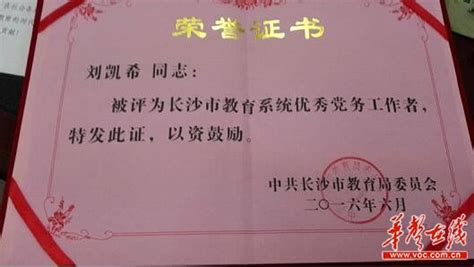 荣誉证书
刘凯希 同志：
被评为长沙市教育系统优秀党务工作者，
特发此证，以资鼓励。
中共长沙市教育局委员会
二〇一六年六月
华声在线
www.voc.com.cn